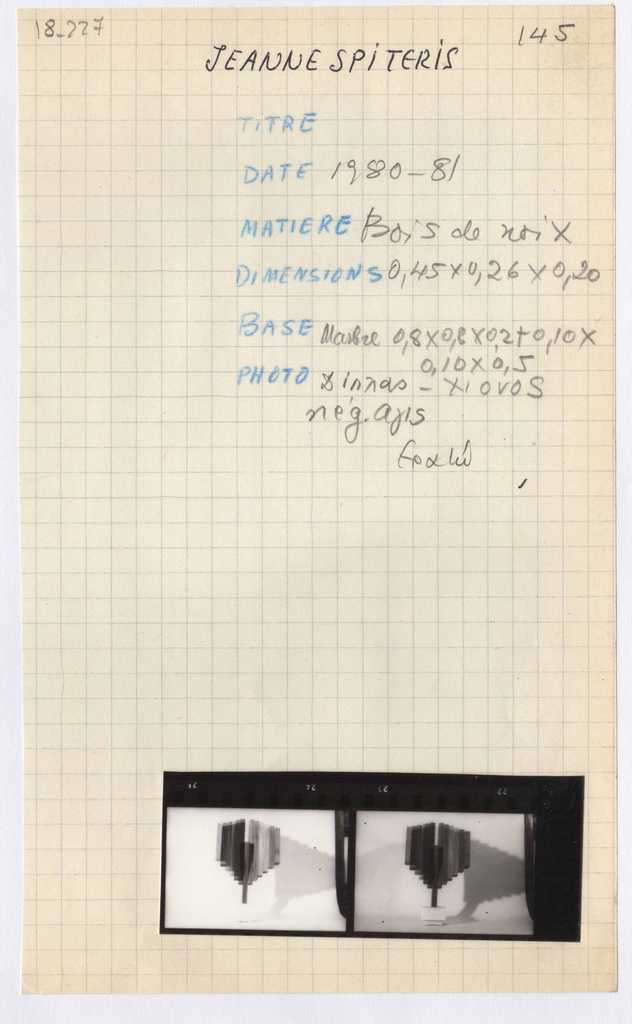 18-227
145
JEANNE SPITERIS
TITRE
DATE 1980-81
MATIERE Bois de noix
DIMENSIONS 0,45 x 0,26 x 0,20
BASE Marbre 0,8 x 0,8 x 0,2 + 0,10 x
0,10 x 0,5
PHOTO
nég.